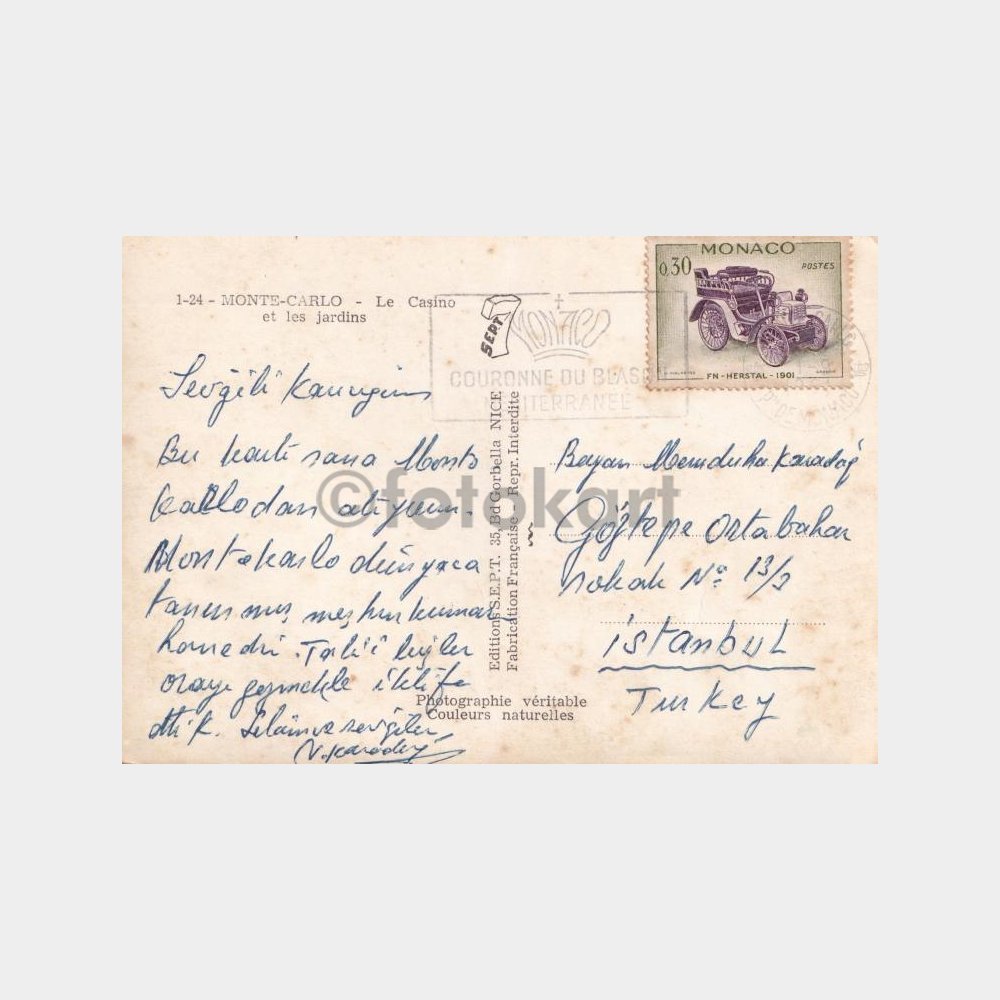 1-24 - MONTE-CARLO - Le Casino
et les jardins
MONACO
0,30
POSTES
FN - HERSTAL - 1901
MONACO
COURONNE DU BLAS
SEPT
Editions S.E.P.T. 35, Bd Gorbella NICE
Fabrication Française - Repr. Interdite
Sevgili
Bu kartı sana Monte
Karlodan atıyorum.
Montekarlo dünyaca
tanınmış meşhur kumar
hanedir. Talii
oraya gezmekle iktifa
ettik. Selâm ve sevgiler
©fotokart
Bayan Memduha Karadağ
Göztepe Ortabahar
sokak No 13/3
istanbul
Turkey
Photographie véritable
Couleurs naturelles